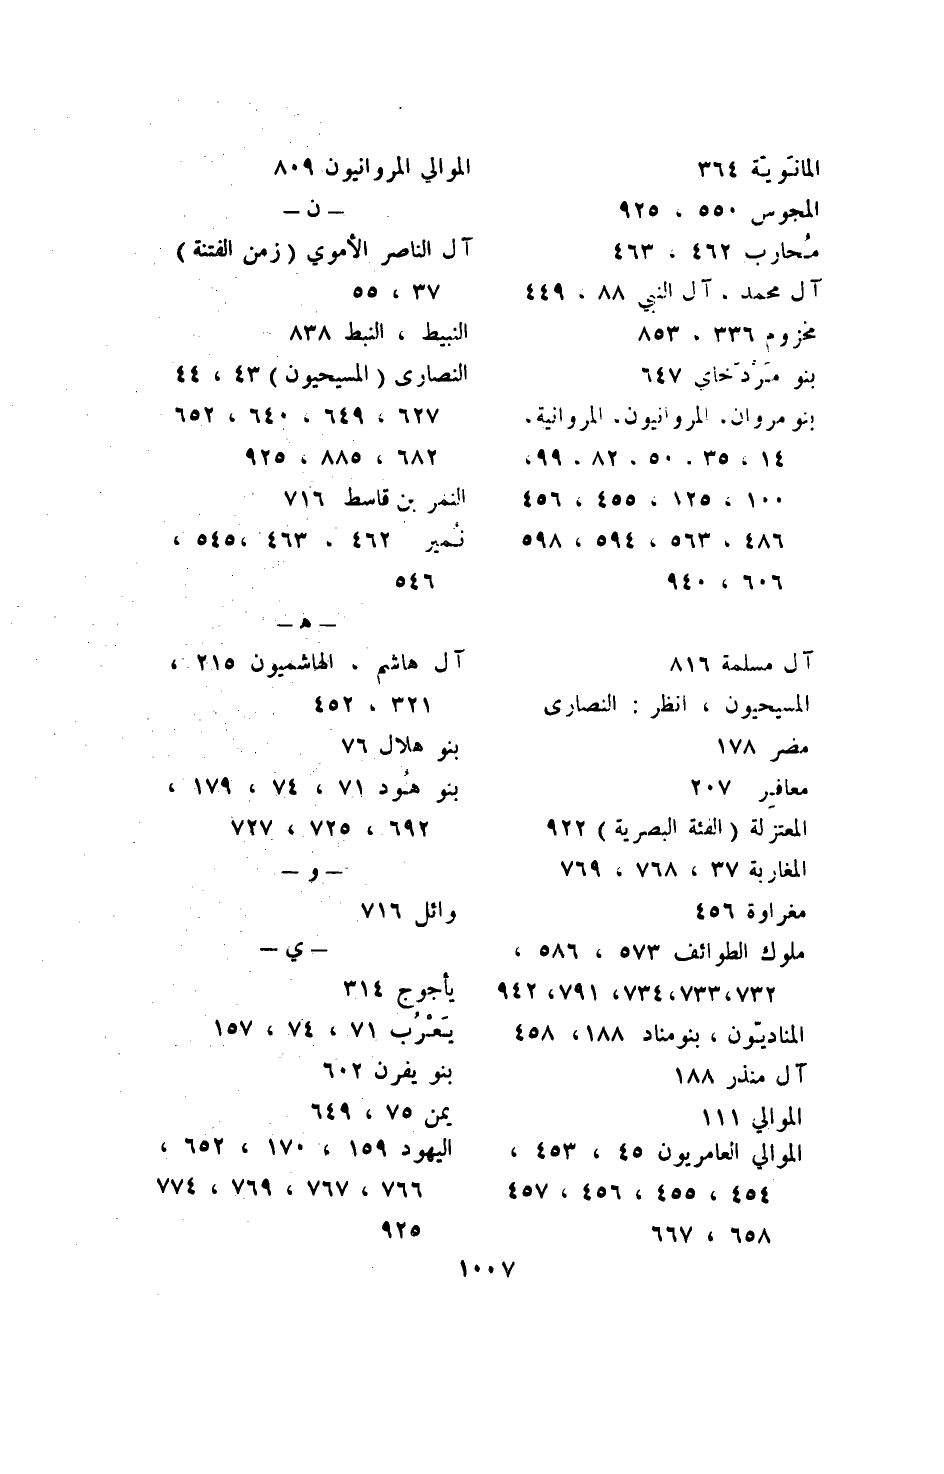 المانَويّة ٣٦٤
المجوس ٥٥٠ ، ٩٢٥
مُحارب ٤٦٢ ، ٤٦٣
آل محمد ، آل النبي ٨٨ ، ٤٤٩
مخزوم ٣٣٦ ، ٨٥٣
بنو مَرْدَخاي ٦٤٧
بنو مروان، المروانيون، المروانية،
١٤ ، ٣٥ ، ٥٠ ، ٨٢ ، ٩٩،
١٠٠ ، ١٢٥ ، ٤٥٥ ، ٤٥٦
٤٨٦ ، ٥٦٣ ، ٥٩٤ ، ٥٩٨
٦٠٦ ، ٩٤٠
آل مسلمة ٨١٦
المسيحيون ، انظر : النصارى
مضر ١٧٨
معافِير ٢٠٧
المعتزلة (الفئة البصرية) ٩٢٢
المغاربة ٣٧ ، ٧٦٨ ، ٧٦٩
مغراوة ٤٥٦
ملوك الطوائف ٥٧٣ ، ٥٨٦ ،
٧٣٢،٧٣٣،٧٣٤، ٧٩١، ٩٤٢
المناديّون ، بنو مناد ١٨٨، ٤٥٨
آل منذر ١٨٨
الموالي ١١١
الموالي العامريون ٤٥ ، ٤٥٣ ،
٤٥٤ ، ٤٥٥ ، ٤٥٦ ، ٤٥٧
٦٥٨ ، ٦٦٧
الموالي المروانيون ٨٠٩
– ن –
آل الناصر الأموي (زمن الفتنة)
٣٧ ، ٥٥
النبيط ، النبط ٨٣٨
النصارى (المسيحيون) ٤٣ ، ٤٤
٦٢٧ ، ٦٤٩ ، ٦٤٠ ، ٦٥٢
٦٨٢ ، ٨٨٥ ، ٩٢٥
النمر بن قاسط ٧١٦
نُمير ٤٦٢ ، ٤٦٣ ،٥٤٥ ،
٥٤٦
– ه –
آل هاشم ، الهاشميون ٢١٥ ،
٣٢١ ، ٤٥٢
بنو هلال ٧٦
بنو هُود ٧١ ، ٧٤ ، ١٧٩ ،
٦٩٢ ، ٧٢٥ ، ٧٢٧
– و –
وائل ٧١٦
– ي –
يأجوج ٣١٤
يَعْرُب ٧١ ، ٧٤ ، ١٥٧
بنو يفرن ٦٠٢
يمن ٧٥ ، ٦٤٩
اليهود ١٥٩ ، ١٧٠ ، ٦٥٢ ،
٧٦٦ ، ٧٦٧ ، ٧٦٩ ، ٧٧٤
٩٢٥
١٠٠٧